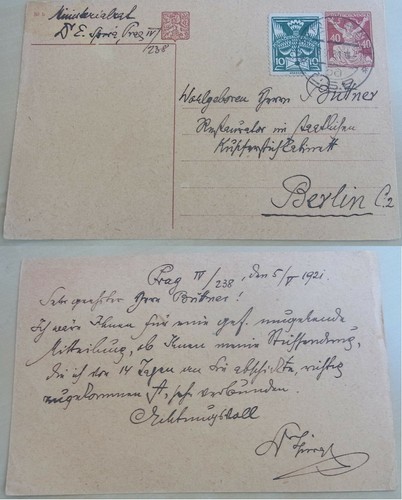 Ministerialrat
Dr E. Prag IV/
238
10 10
40 40
Wohlgeboren Herrn Büttner
Restaurator im staatlichen
Kupferstichkabinett
Berlin C.2
Prag IV/238, den 5/V 1921.
Sehr geehrter Herr Büttner!
Ich wäre Ihnen für eine gef. umgehende
Mitteilung, ob Ihnen meine
die ich vor 14 Tagen an Sie abschickte, richtig
zugekommen sehr verbunden.
Achtungsvoll
Dr